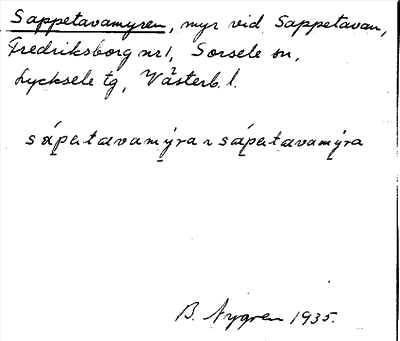 Sappetavamyren, myr vid Sappetavan,
Fredriksborg nr 1, Sorsele sn,
Lycksele tg, Västerb. l.
sápətavamýra ~ sápətavamýra
B. Nygren 1935.